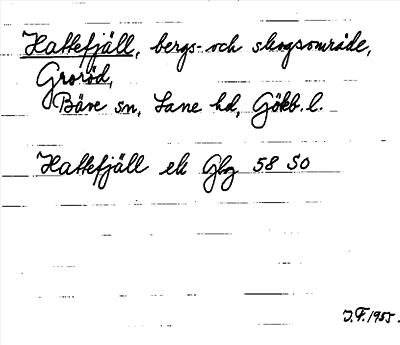 Hattefjäll, bergs- och skogsområde,
Groröd,
Bäve sn, Lane hd, Gökb. l.
Hattefjäll ek Gbg 58 SO
J.F. 1955.